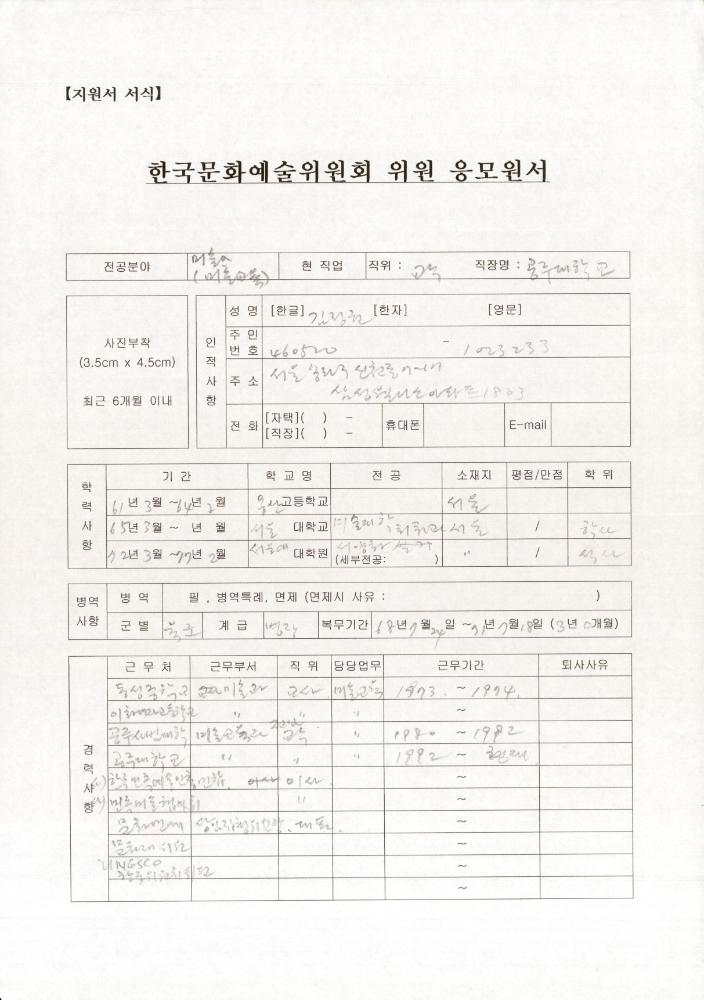 【지원서 서식】
한국문화예술위원회 위원 응모원서
전공분야 미술 (미술교육) 현 직업 직위 : 교수 직장명 : 공주대학교
사진부착
(3.5cm x 4.5cm)
최근 6개월 이내
인적사항
성 명 [한글] 김정헌 [한자] [영문]
주민번호 460520 - 1023233
주 소 서울 송파구 신천동
아파트 1803
전 화 [자택]( ) -
[직장]( ) -
휴대폰 E-mail
학력사항
기 간 학 교 명 전 공 소재지 평점/만점 학 위
61년 3월 ~64년 2월 용산고등학교 서울
65년 3월 ~ 년 월 서울 대학교 미술대학 회화과 서울 / 학사
72년 3월 ~77년 2월 서울대 대학원 서양화
(세부전공: ) " / 석사
병역사항
병 역 필 , 병역특례, 면제 (면제시 사유 : )
군 별 육군 계 급 병장 복무기간 68년 7월 24일 ~71년 7월 18일 (3년 0개월)
경력사항
근 무 처 근무부서 직 위 담당업무 근무기간 퇴사사유
동성중학교 미술과 교사 미술교육 1973. ~ 1974.
이화여자고등학교 " " " ~
공주사범대학 미술교육과 " 1980 ~ 1982
공주대학교 " " " 1992 ~ 현재
한국민족예술인총연합 이사 ~
민족미술협의회 " ~
문화연대 대표 ~
~
UNESCO ~
~